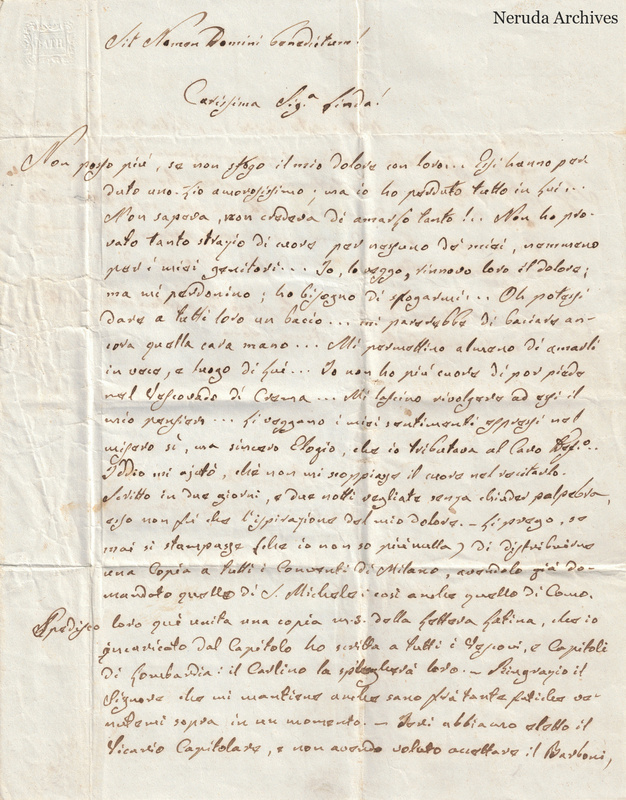 Neruda Archives
Sit Nomen Domini benedictum!
Carissima Sig.a Linda!
Non posso più, se non sfogo il mio dolore con loro... Essi hanno per
duto uno Zio amorosissimo; ma io ho perduto tutto in Lui...
Non sapeva, non credeva di amarlo tanto!.. Non ho pro-
vato tanto strazio di cuore per nessuno de' miei, nemmeno
per i miei genitori... Io, lo veggo, rinnovo loro il dolore;
ma mi perdonino; ho bisogno di sfogarmi... Oh potessi
dare a tutti loro un bacio... mi parerebbe di baciare an-
cora quella cara mano... Mi permettino almeno di amarli
in vece, e luogo di Lui... Io non ho più cuore di por piede
nel Vescovado di Crema... Mi lascino rivolgere ad essi il
mio pensiero... Li veggano i miei sentimenti espressi nel
misero sì, ma sincero Elogio, che io tributava al Caro
Iddio mi ajutò, chè non mi scoppiasse il cuore nel recitarlo.
Scritto in due giorni, e due notti vegliate senza chiuder palpebra,
esso non fù che l'ispirazione del mio dolore. - Li prego, se
mai si stampasse (che io non so più nulla) di distribuirne
una Copia a tutti i Conventi di Milano, avendolo già do-
mandato quello di S. Michele: così anche quello di Como.
Spedisco loro quì unita una copia m.s. della Lettera Latina, che io
incaricato dal Capitolo ho scritta a tutti i Vescovi, e Capitoli
di Lombardia: il Carlino la spiegherà loro. - Ringrazio il
Signore che mi mantiene anche sano frà tante fatiche ve-
nutemi sopra in un momento. - Ieri abbiamo eletto il
Vicario Capitolare, e non avendo voluto accettare il Barboni,